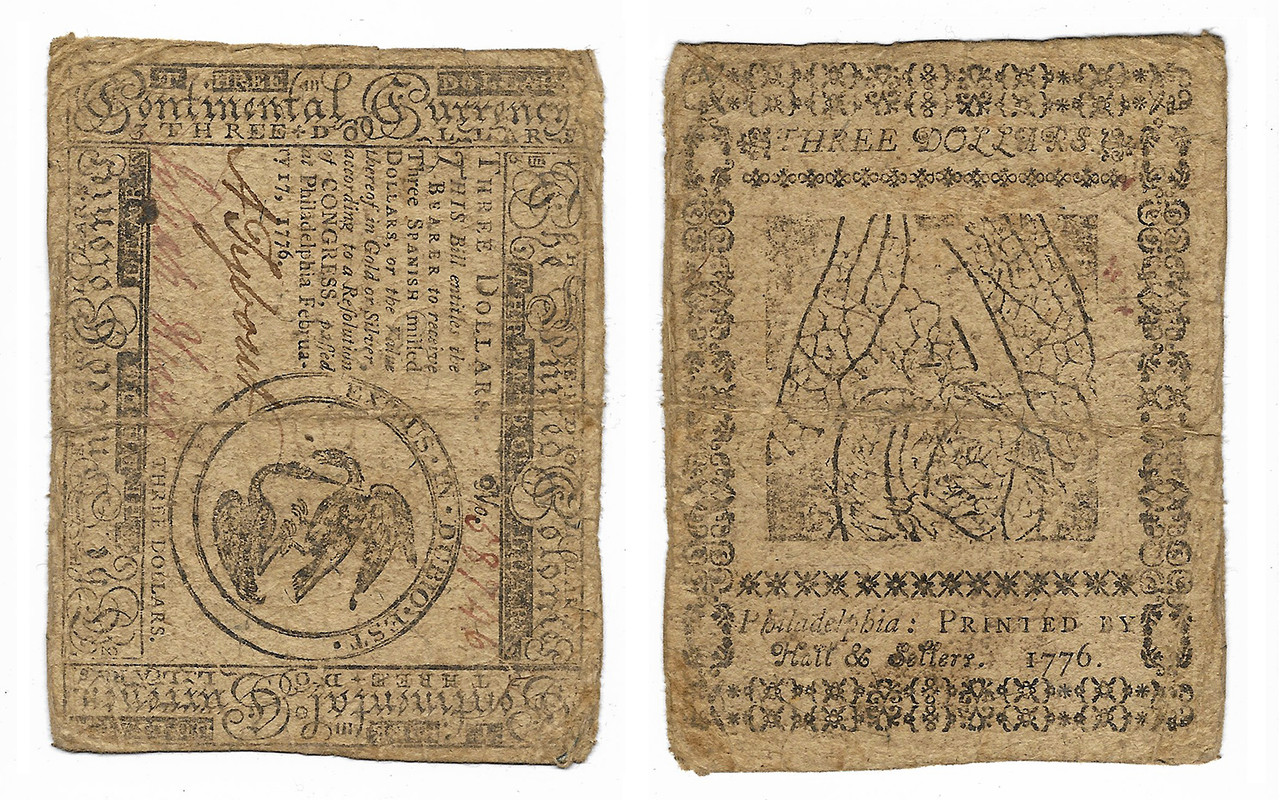 Continental Currency
THREE DOLLARS
The United Colonies
THREE DOLLARS.
THIS Bill entitles the
BEARER to receive
Three SPANISH milled
DOLLARS, or the Value
thereof in Gold or Silver,
according to a Resolution
of CONGRESS, passed
at Philadelphia Februa-
ry 17, 1776.
No
EXITUS·IN·DUBIO·EST·
THREE DOLLARS.
The United Colonies
Continental Currency
THREE DOLLARS
THREE DOLLARS.
Philadelphia: PRINTED BY
Hall & Sellers. 1776.